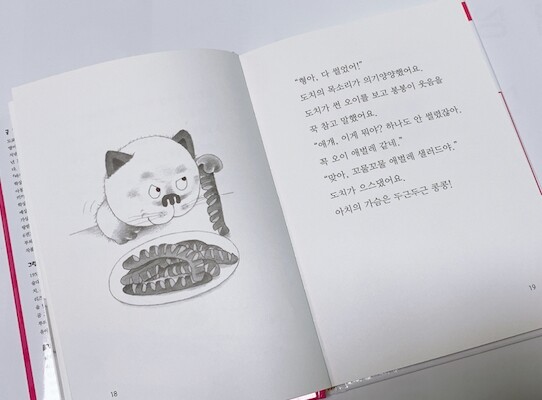 “형아, 다 썰었어!”
도치의 목소리가 의기양양했어요.
도치가 썬 오이를 보고 봉봉이 웃음을
꾹 참고 말했어요.
“얘개, 이게 뭐야? 하나도 안 썰렸잖아.
꼭 오이 애벌레 같네.”
“맞아, 꼬물꼬물 애벌레 샐러드야.”
도치가 으스댔어요.
아치의 가슴은 두근두근 콩콩!
18
19